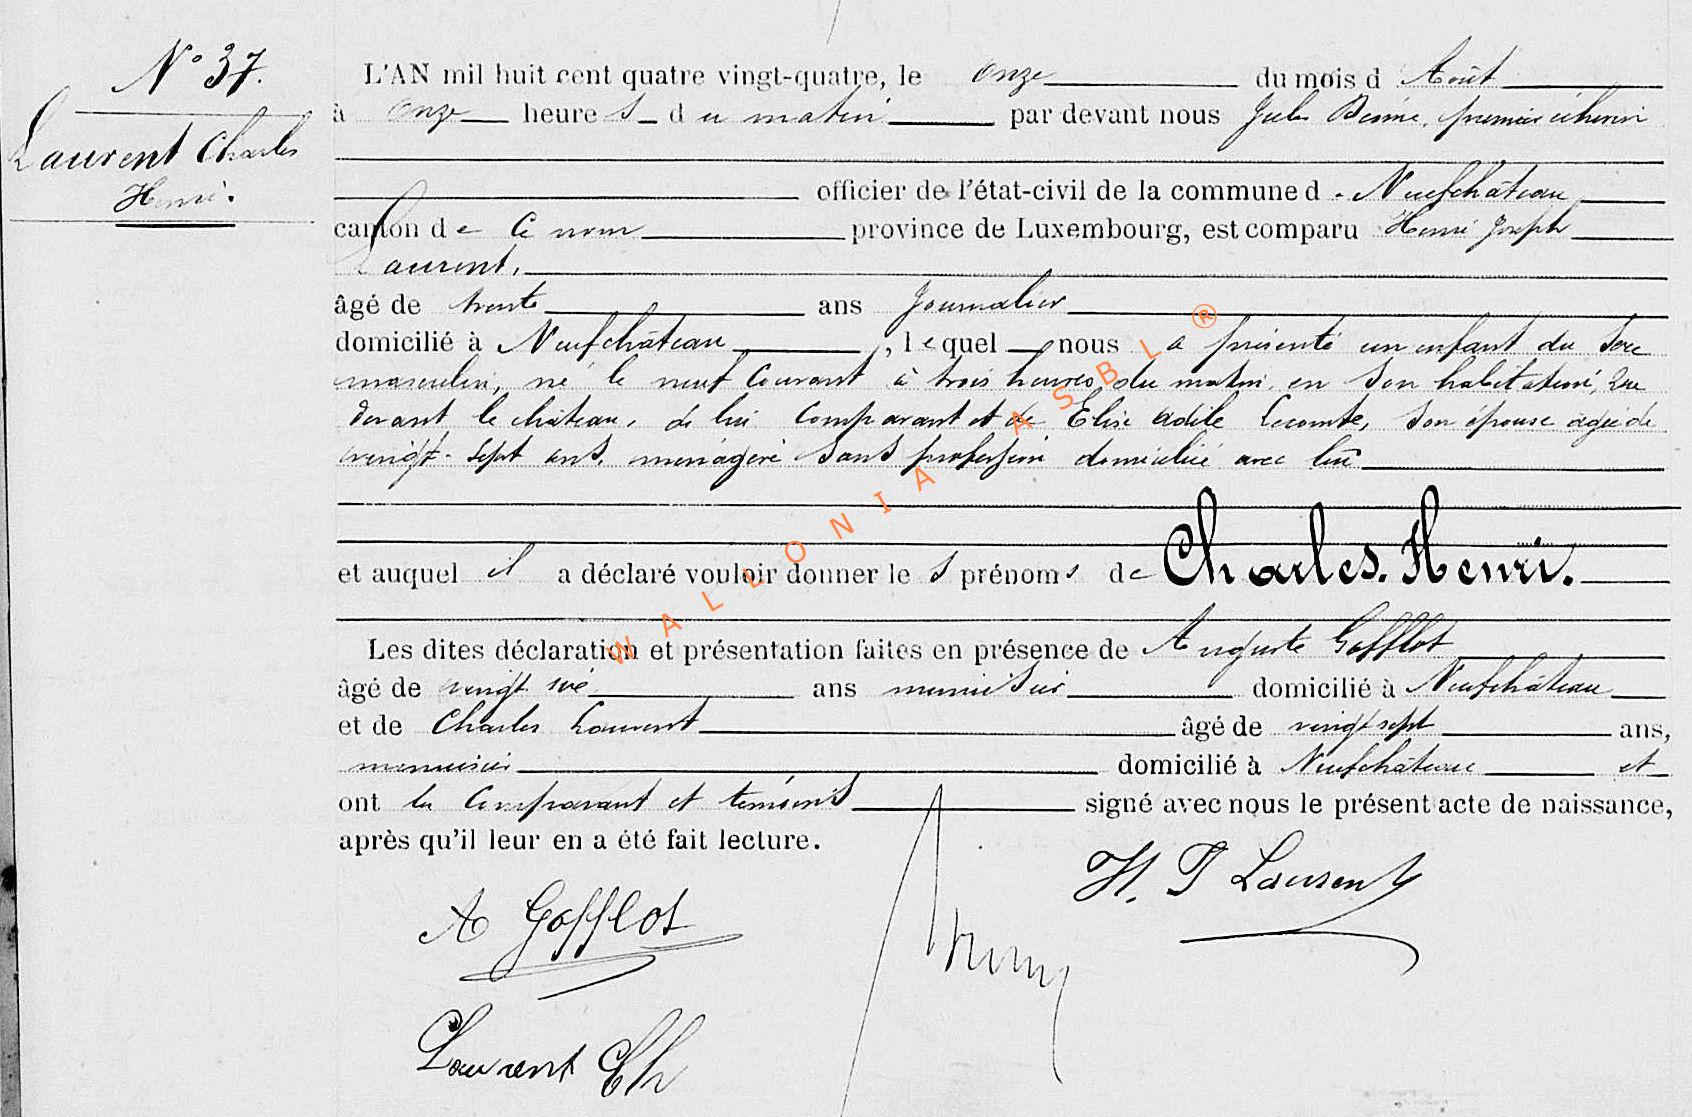 N° 37.
Laurent Charles
Henri.
L'AN mil huit cent quatre vingt-quatre, le onze du mois d Août
à onze heure s du matin par devant nous Jules premier échevin
officier de l'état-civil de la commune d Neufchâteau
canton de ce nom province de Luxembourg, est comparu Henri Joseph
Laurent,
âgé de trente ans Journalier
domicilié à Neufchâteau, lequel nous a présenté un enfant du sexe
masculin, né le neuf courant à trois heures du matin, en son habitation, rue
devant le château, de lui comparant et de Elise Adile Lecomte, son épouse agée de
vingt-sept ans, ménagère sans profession domiciliée avec lui
et auquel il a déclaré vouloir donner le s prénom s de Charles. Henri.
Les dites déclaration et présentation faites en présence de Auguste Gofflot
âgé de vingt ans menuisier domicilié à Neufchâteau
et de Charles Laurent âgé de vingt sept ans,
menuisier domicilié à Neufchâteau et
ont le comparant et témoins signé avec nous le présent acte de naissance,
après qu'il leur en a été fait lecture.
H. J Laurent
A Gofflot
Laurent Ch
WALLONIA ASBL ®